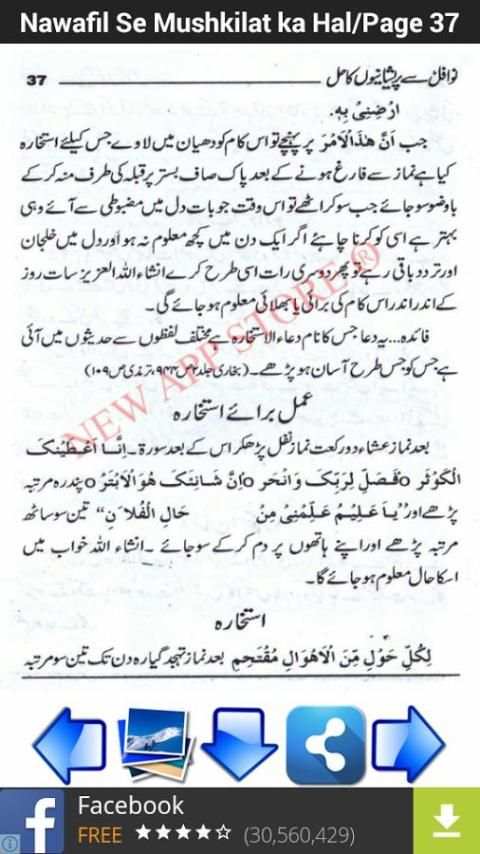 Nawafil Se Mushkilat ka Hal/Page 37
نوافل سے پریشانیوں کا حل 37
اَرْضِنِیْ بِهٖ.
جب اَنَّ هٰذَا الْاَمْرَ پر پہنچے تو اس کام کو دھیان میں لاوے جس کیلئے استخارہ
کیا ہے نماز سے فارغ ہونے کے بعد پاک صاف بستر پر قبلہ کی طرف منہ کر کے
باوضو سو جائے جب سو کر اٹھے تو اس وقت جو بات دل میں مضبوطی سے آئے وہی
بہتر ہے اسی کو کرنا چاہئے اگر ایک دن میں کچھ معلوم نہ ہو اور دل میں خلجان
اور تردد باقی رہے تو پھر دوسری رات اسی طرح کرے انشاء اللہ العزیز سات روز
کے اندر اندر اس کام کی برائی یا بھلائی معلوم ہو جائے گی۔
فائدہ... یہ دعا جس کا نام دعاء الاستخارہ ہے مختلف لفظوں سے حدیثوں میں آئی
ہے جس کو جس طرح آسان ہو پڑھے۔ (بخاری جلد ۲ ص ۹۴۴، ترمذی ص ۱۰۹)
NEW APP STORE ®
عمل برائے استخارہ
بعد نماز عشاء دو رکعت نماز نفل پڑھ کر اس کے بعد سورۃ۔ اِنَّا اَعْطَیْنٰکَ
الْکَوْثَرَ o فَصَلِّ لِرَبِّکَ وَانْحَرْ o اِنَّ شَانِئَکَ هُوَ الْاَبْتَرُ o پندرہ مرتبہ
پڑھے اور "یَا عَلِیْمُ عَلِّمْنِیْ مِنْ حَالِ الْفُلَانِ" تین سو ساٹھ
مرتبہ پڑھے اور اپنے ہاتھوں پر دم کر کے سو جائے۔ انشاء اللہ خواب میں
اسکا حال معلوم ہو جائے گا۔
استخارہ
لِکُلِّ حَوْلٍ مِّنَ الْاَهْوَالِ مُقْتَحِمِ بعد نماز تہجد گیارہ دن تک تین سو مرتبہ
Facebook
FREE (30,560,429)